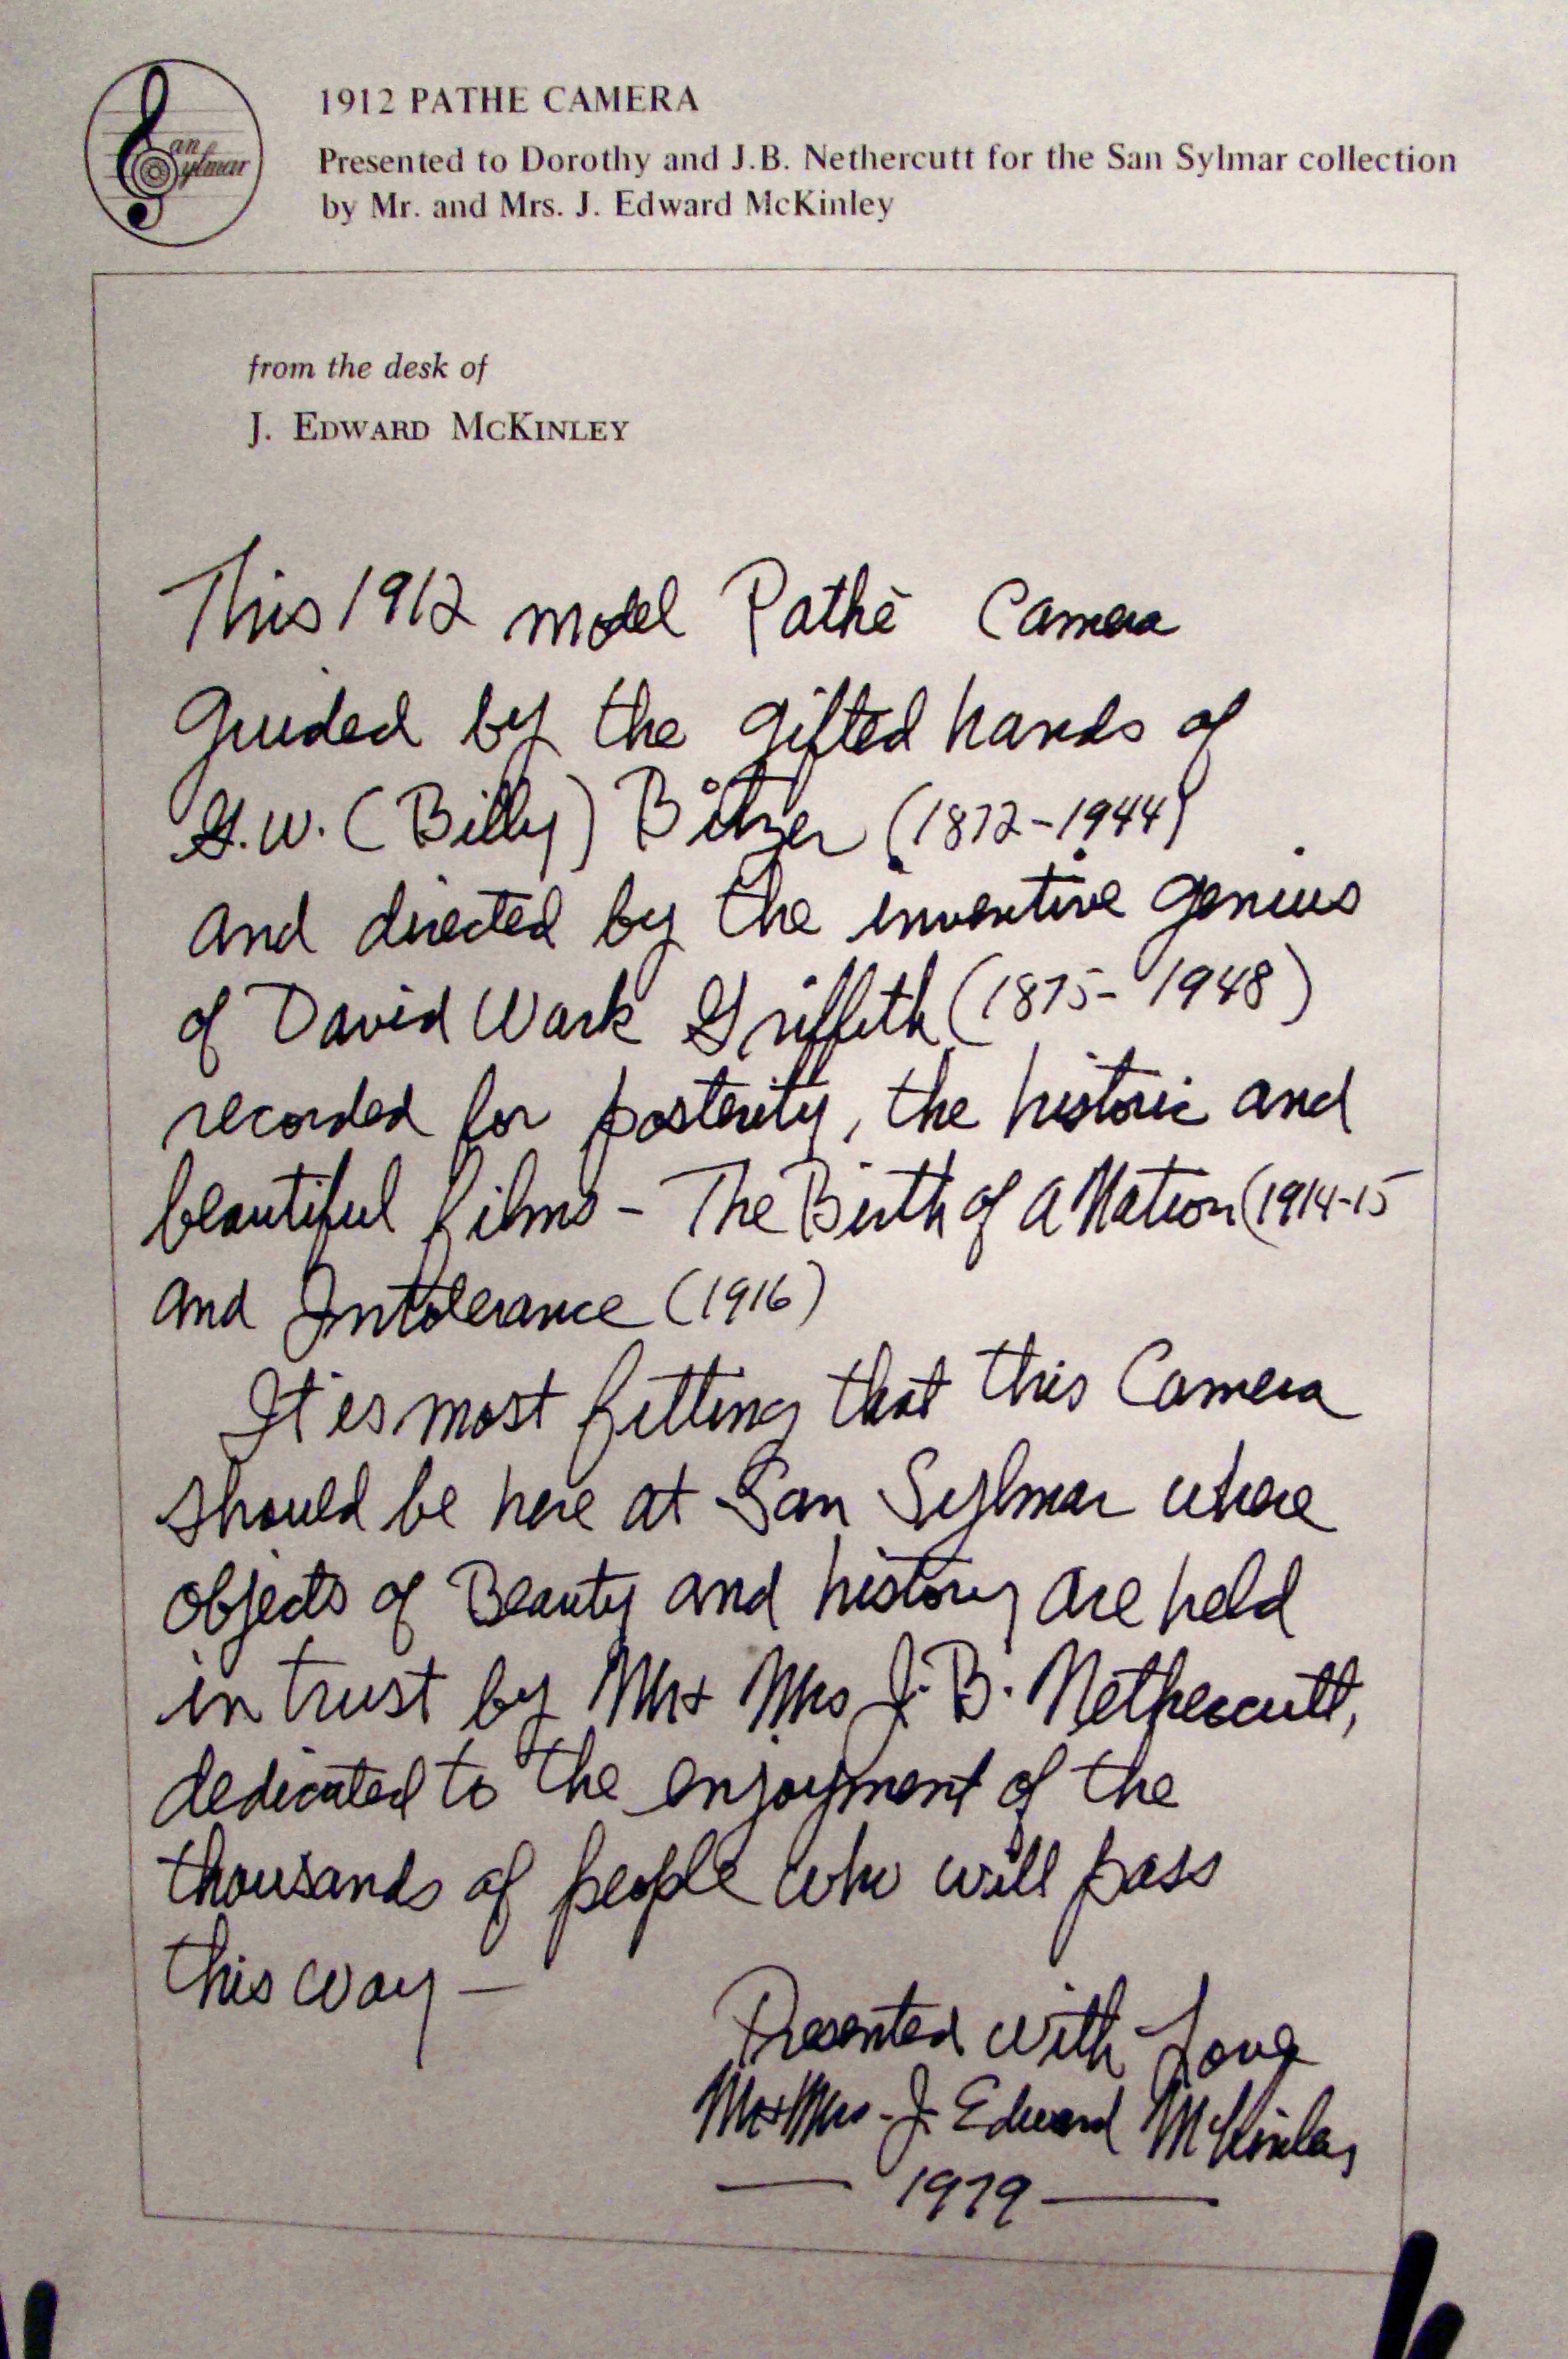 San Sylmar
1912 PATHE CAMERA
Presented to Dorothy and J.B. Nethercutt for the San Sylmar collection
by Mr. and Mrs. J. Edward McKinley
from the desk of
J. EDWARD MCKINLEY
This 1912 model Pathé Camera
guided by the gifted hands of
G.W. (Billy) Bitzer (1872-1944)
and directed by the inventive genius
of David Wark Griffith (1875-1948)
recorded for posterity, the historic and
beautiful films - The Birth of a Nation (1914-15
and Intolerance (1916)
It is most fitting that this Camera
should be here at San Sylmar where
objects of Beauty and history are held
in trust by Mr + Mrs J. B. Nethercutt,
dedicated to the enjoyment of the
thousands of people who will pass
this way —
Presented with Love
Mr + Mrs. J. Edward McKinley
— 1979 —